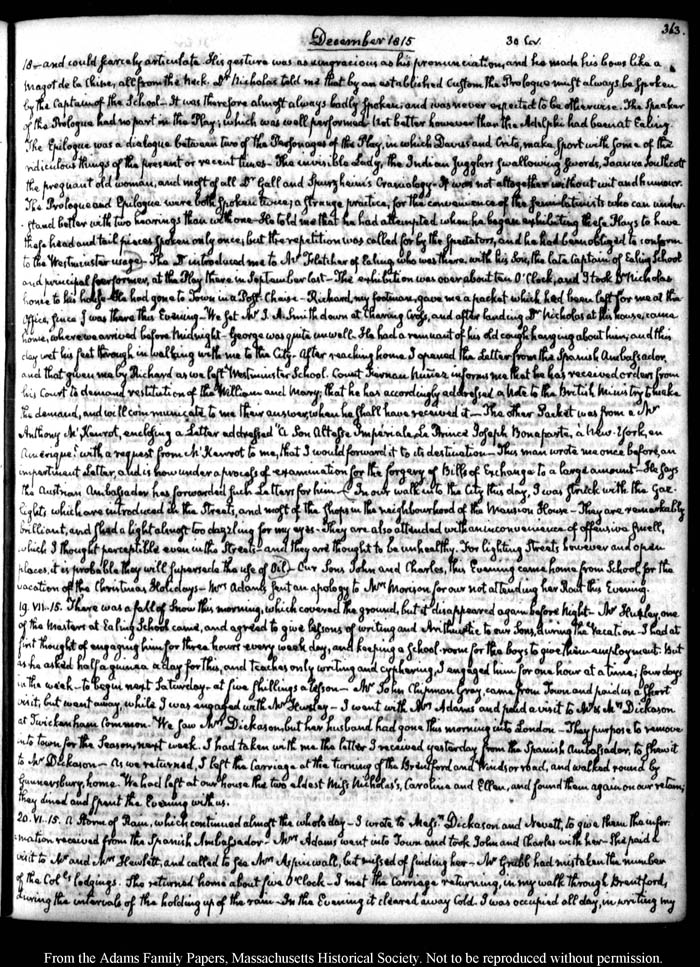 December 1815
30 Cov.
363.
18— and could scarcely articulate. His gesture was as ungracious as his pronunciation, and he made his bows like a
magot de la Chine, all from the neck. Dr. Nicholas told me that by an established Custom the Prologue must always be spoken
by the Captain of the School— It was therefore almost always badly spoken, and was never expected to be otherwise. The Speaker
of the Prologue had no part in the Play; which was well performed. Not better however than the Adelphi had been at Ealing.
The Epilogue was a dialogue between two of the Personages of the Play, in which Davus and Crito, make sport with some of the
ridiculous things of the present or recent times— The invisible Lady, the Indian Jugglers swallowing swords, Joanna Southcott
the pregnant old woman, and most of all Dr. Gall and Spurzheim's Craniology— It was not altogether without wit and humour.
The Prologue and Epilogue were both spoken twice; a strange practice, for the convenience of the who can under-
stand better with two hearings than with one— He told me that he had attempted when he began exhibiting these Plays to have
these head and tail pieces spoken only once, but the repetition was called for by the Spectators, and he had been obliged to conform
to the Westminster usage— The Dr. introduced me to Mr. Fletcher of Ealing who was there, with his Son, the late Captain of Ealing School
and principal performer, at the Play there in September last— The exhibition was over about ten O'Clock, and I took Dr. Nicholas
home to his house— He had gone to Town in a Post-Chaise— Richard, my footman, gave me a packet which had been left for me at the
Office, since I was there this Evening— We set Mr. J. A. Smith down at Charing Cross, and after landing Dr. Nicholas at his house, came
home, where we arrived before Midnight— George was quite unwell. He had a remnant of his old cough hanging about him, and this
day wet his feet through in walking with me to the City. After reaching home I opened the Letter from the Spanish Ambassador,
and that given me by Richard as we left Westminster School. Count Fernan Nuñez informs me that he has received orders from
his Court to demand restitution of the William and Mary; that he has accordingly addressed a Note to the British Ministry to make
the demand, and will communicate to me their answer, when he shall have received it— The other Packet was from a Mr.
Anthony McKenrot, enclosing a Letter addressed "A Son Altesse Imperiale, Le Prince Joseph Bonaparte, à New-York, en
Amerique." with a request from McKenrot to me, that I would forward it to its destination— This man wrote me once before, an
impertinent Letter, and is now under a process of examination for the forgery of Bills of Exchange to a large amount— He says
the Austrian Ambassador has forwarded such Letters for him— In our walk into the City this day, I was struck with the Gaz-
lights which are introduced in the Streets, and most of the Shops in the neighbourhood of the Mansion House— They are remarkably
brilliant, and shed a light almost too dazzling for my eyes. They are also attended with an inconvenience of offensive smell,
which I thought perceptible even in the Streets— and they are thought to be unhealthy. For lighting Streets however and open
places, it is probable they will supersede the use of Oil— Our Sons John and Charles, this Evening came home from School, for the
vacation of the Christmas Holidays— Mrs. Adams sent an apology to Mrs. Morison for our not attending her Rout this Evening.
19. VII:15. There was a fall of Snow this morning, which covered the ground, but it disappeared again before Night— Mr. Huxley one
of the Masters at Ealing School came, and agreed to give lessons of writing and Arithmetic to our Sons, during the Vacation— I had at
first thought of engaging him for three hours every week day, and keeping a School-room for the boys to give them employment. But
as he asked half a guinea a day for this, and teaches only writing and cyphering, I engaged him for one hour at a time; four days
in the week— to begin next Saturday— at five shillings a lesson— Mr. John Chipman Gray, came from Town and paid us a short
visit, but went away, while I was engaged with Mr. Huxley— I went with Mrs. Adams and paid a visit to Mr. & Mrs. Dickason
at Twickenham Common. We saw Mrs. Dickason, but her husband had gone this morning into London— They purpose to remove
into town for the Season, next week. I had taken with me the letter I received yesterday from the Spanish Ambassador, to shew it
to Mr. Dickason— As we returned, I left the Carriage at the turning of the Brentford and Windsor road, and walked round by
Gunnersbury, home. We had left at our house the two eldest Miss Nicholas's, Caroline and Ellen, and found them again on our return;
they dined and spent the Evening with us.
20. VI:15. A storm of Rain, which continued almost the whole day— I wrote to Messrs. Dickason and Nevett, to give them the infor-
mation received from the Spanish Ambassador— Mrs. Adams went into Town and took John and Charles with her— She paid a
visit to Mr. and Mrs. Hewlett, and called to see Mrs. Aspinwall, but missed of finding her— Mr. Grubb had mistaken the number
of the Col's lodgings. She returned home about five O'Clock— I met the Carriage returning, in my walk through Brentford,
during the intervals of the holding up of the rain— In the Evening it cleared away Cold. I was occupied all day, in writing my
From the Adams Family Papers, Massachusetts Historical Society. Not to be reproduced without permission.